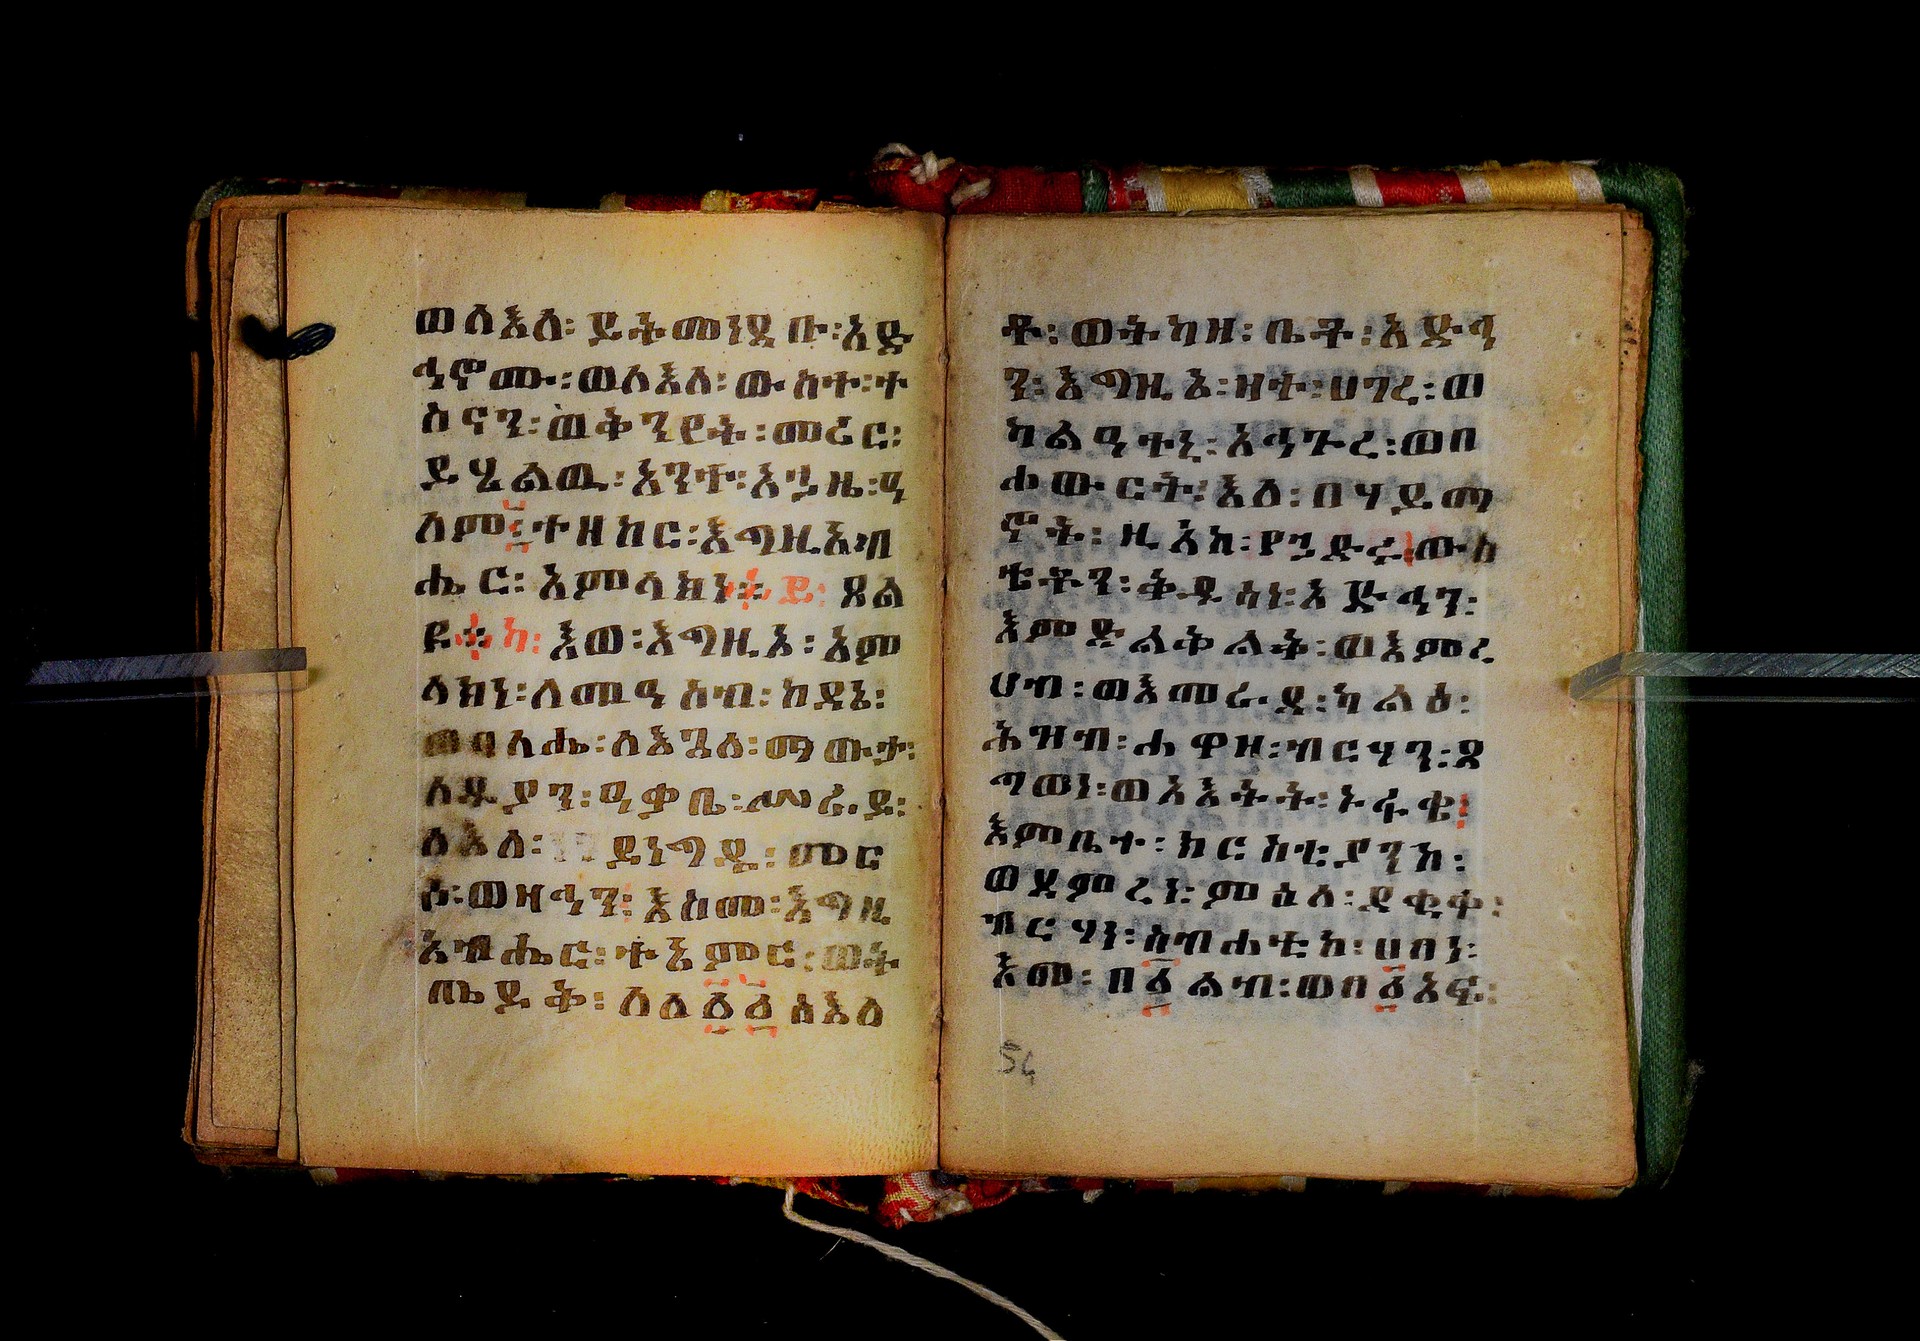 ወለእለ፡ ይትመነደቡ፡ አድ
ኅኖሙ፡ ወለእለ፡ ውስተ፡ ተ
ስናን፡ ወቅንየት፡ መሪር፡
ይሄልዉ፡ አንተ፡ እኂዜ፡ ዓ
ለም፡ ተዘከር፡ እግዚአብ
ሔር፡ አምላክነ፡ ይ፡ ጸል
ዩ፡ ካ፡ እወ፡ እግዚእ፡ አም
ላክነ፡ ለመዓስብ፡ ከዳኔ፡
ወባልሔ፡ ለእጓለ፡ ማውታ፡
ለነዳያን፡ ዓቃቤ፡ መራዲ፡
ለእለ፡ ይነግዱ፡ መር
ሶ፡ ወዛኅን፡ እስመ፡ እግዚ
አብሔር፡ ተአምር፡ ወት
ጤይቅ፡ ለለ፩፩ ስእለ
ቶ፡ ወትካዘ፡ ቤት፡ አድኅ
ን፡ እግዚኦ፡ ዛተ፡ ሀገረ፡ ወ
ካልዓተኒ፡ አኅጉረ፡ ወበ
ሐውርት፡ እለ፡ በሃይማ
ኖት፡ ዚአከ፡ የኀድሩ፡ ውስ
ቴቶን፡ ቅዱሳነ፡ አድኅን፡
እምድልቅልቅ፡ ወእምረ
ሀብ፡ ወእመራደ፡ ካልዕ፡
ሕዝብ፡ ሐዋዘ፡ ብርሃን፡ ጸ
ግወነ፡ ወአእትት፡ ኑፋቄ፡
እምቤተ፡ ክርስቲያንከ፡
ወደምረነ፡ ምስለ፡ ደቂቀ፡
ብርሃን፡ ስብሐቲከ፡ ሀበነ፡
እመ፡ በ፩ ልብ፡ ወበ፩ አፍ፡
54